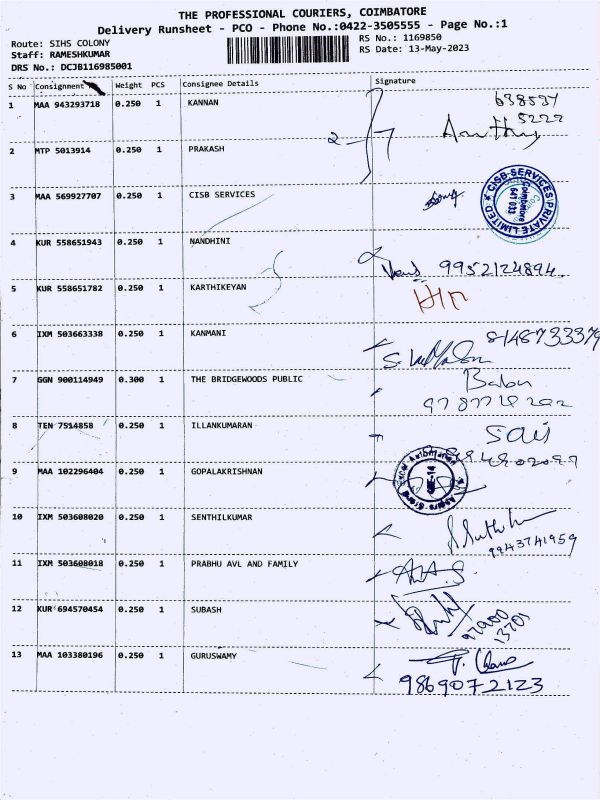 THE PROFESSIONAL COURIERS, COIMBATORE
Delivery Runsheet - PCO - Phone No.:0422-3505555 - Page No.:1
Route: SIHS COLONY
RS No.: 1169850
Staff: RAMESHKUMAR
RS Date: 13-May-2023
DRS No.: DCJB116985001
S No Consignment Weight PCS Consignee Details Signature
1 MAA 943293718 0.250 1 KANNAN
2 MTP 5013914 0.250 1 PRAKASH
3 MAA 569927707 0.250 1 CISB SERVICES
CISB SERVICES PRIVATE LIMITED
Coimbatore
641 033
4 KUR 558651943 0.250 1 NANDHINI
9952124894.
5 KUR 558651782 0.250 1 KARTHIKEYAN
6 IXM 503663338 0.250 1 KANMANI
8148733379
7 GGN 900114949 0.300 1 THE BRIDGEWOODS PUBLIC
Babu
8 TEN 7514858 0.250 1 ILLANKUMARAN
9 MAA 102296404 0.250 1 GOPALAKRISHNAN
10 IXM 503608020 0.250 1 SENTHILKUMAR
9943741959
11 IXM 503608018 0.250 1 PRABHU AVL AND FAMILY
12 KUR 694570454 0.250 1 SUBASH
13 MAA 103380196 0.250 1 GURUSWAMY
9869072123